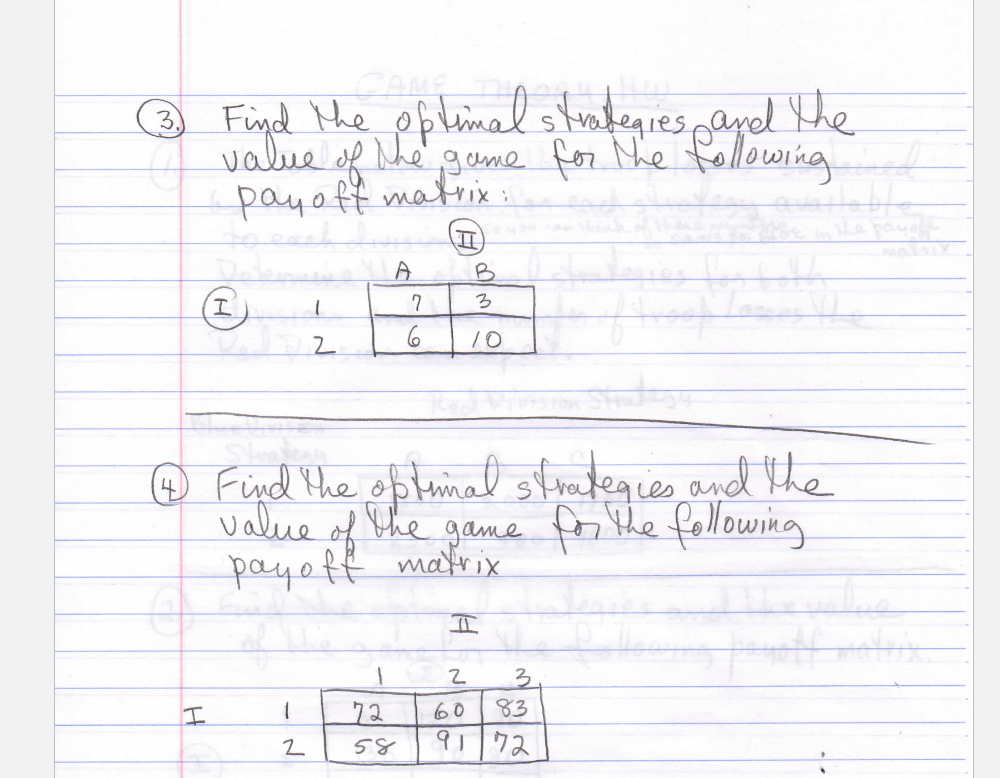 3. Find the optimal strategies and the
value of the game for the following
payoff matrix:
II
A B
I 1 7 3
2 6 10
4 Find the optimal strategies and the
value of the game for the following
payoff matrix
II
1 2 3
I 1 72 60 83
2 58 91 72